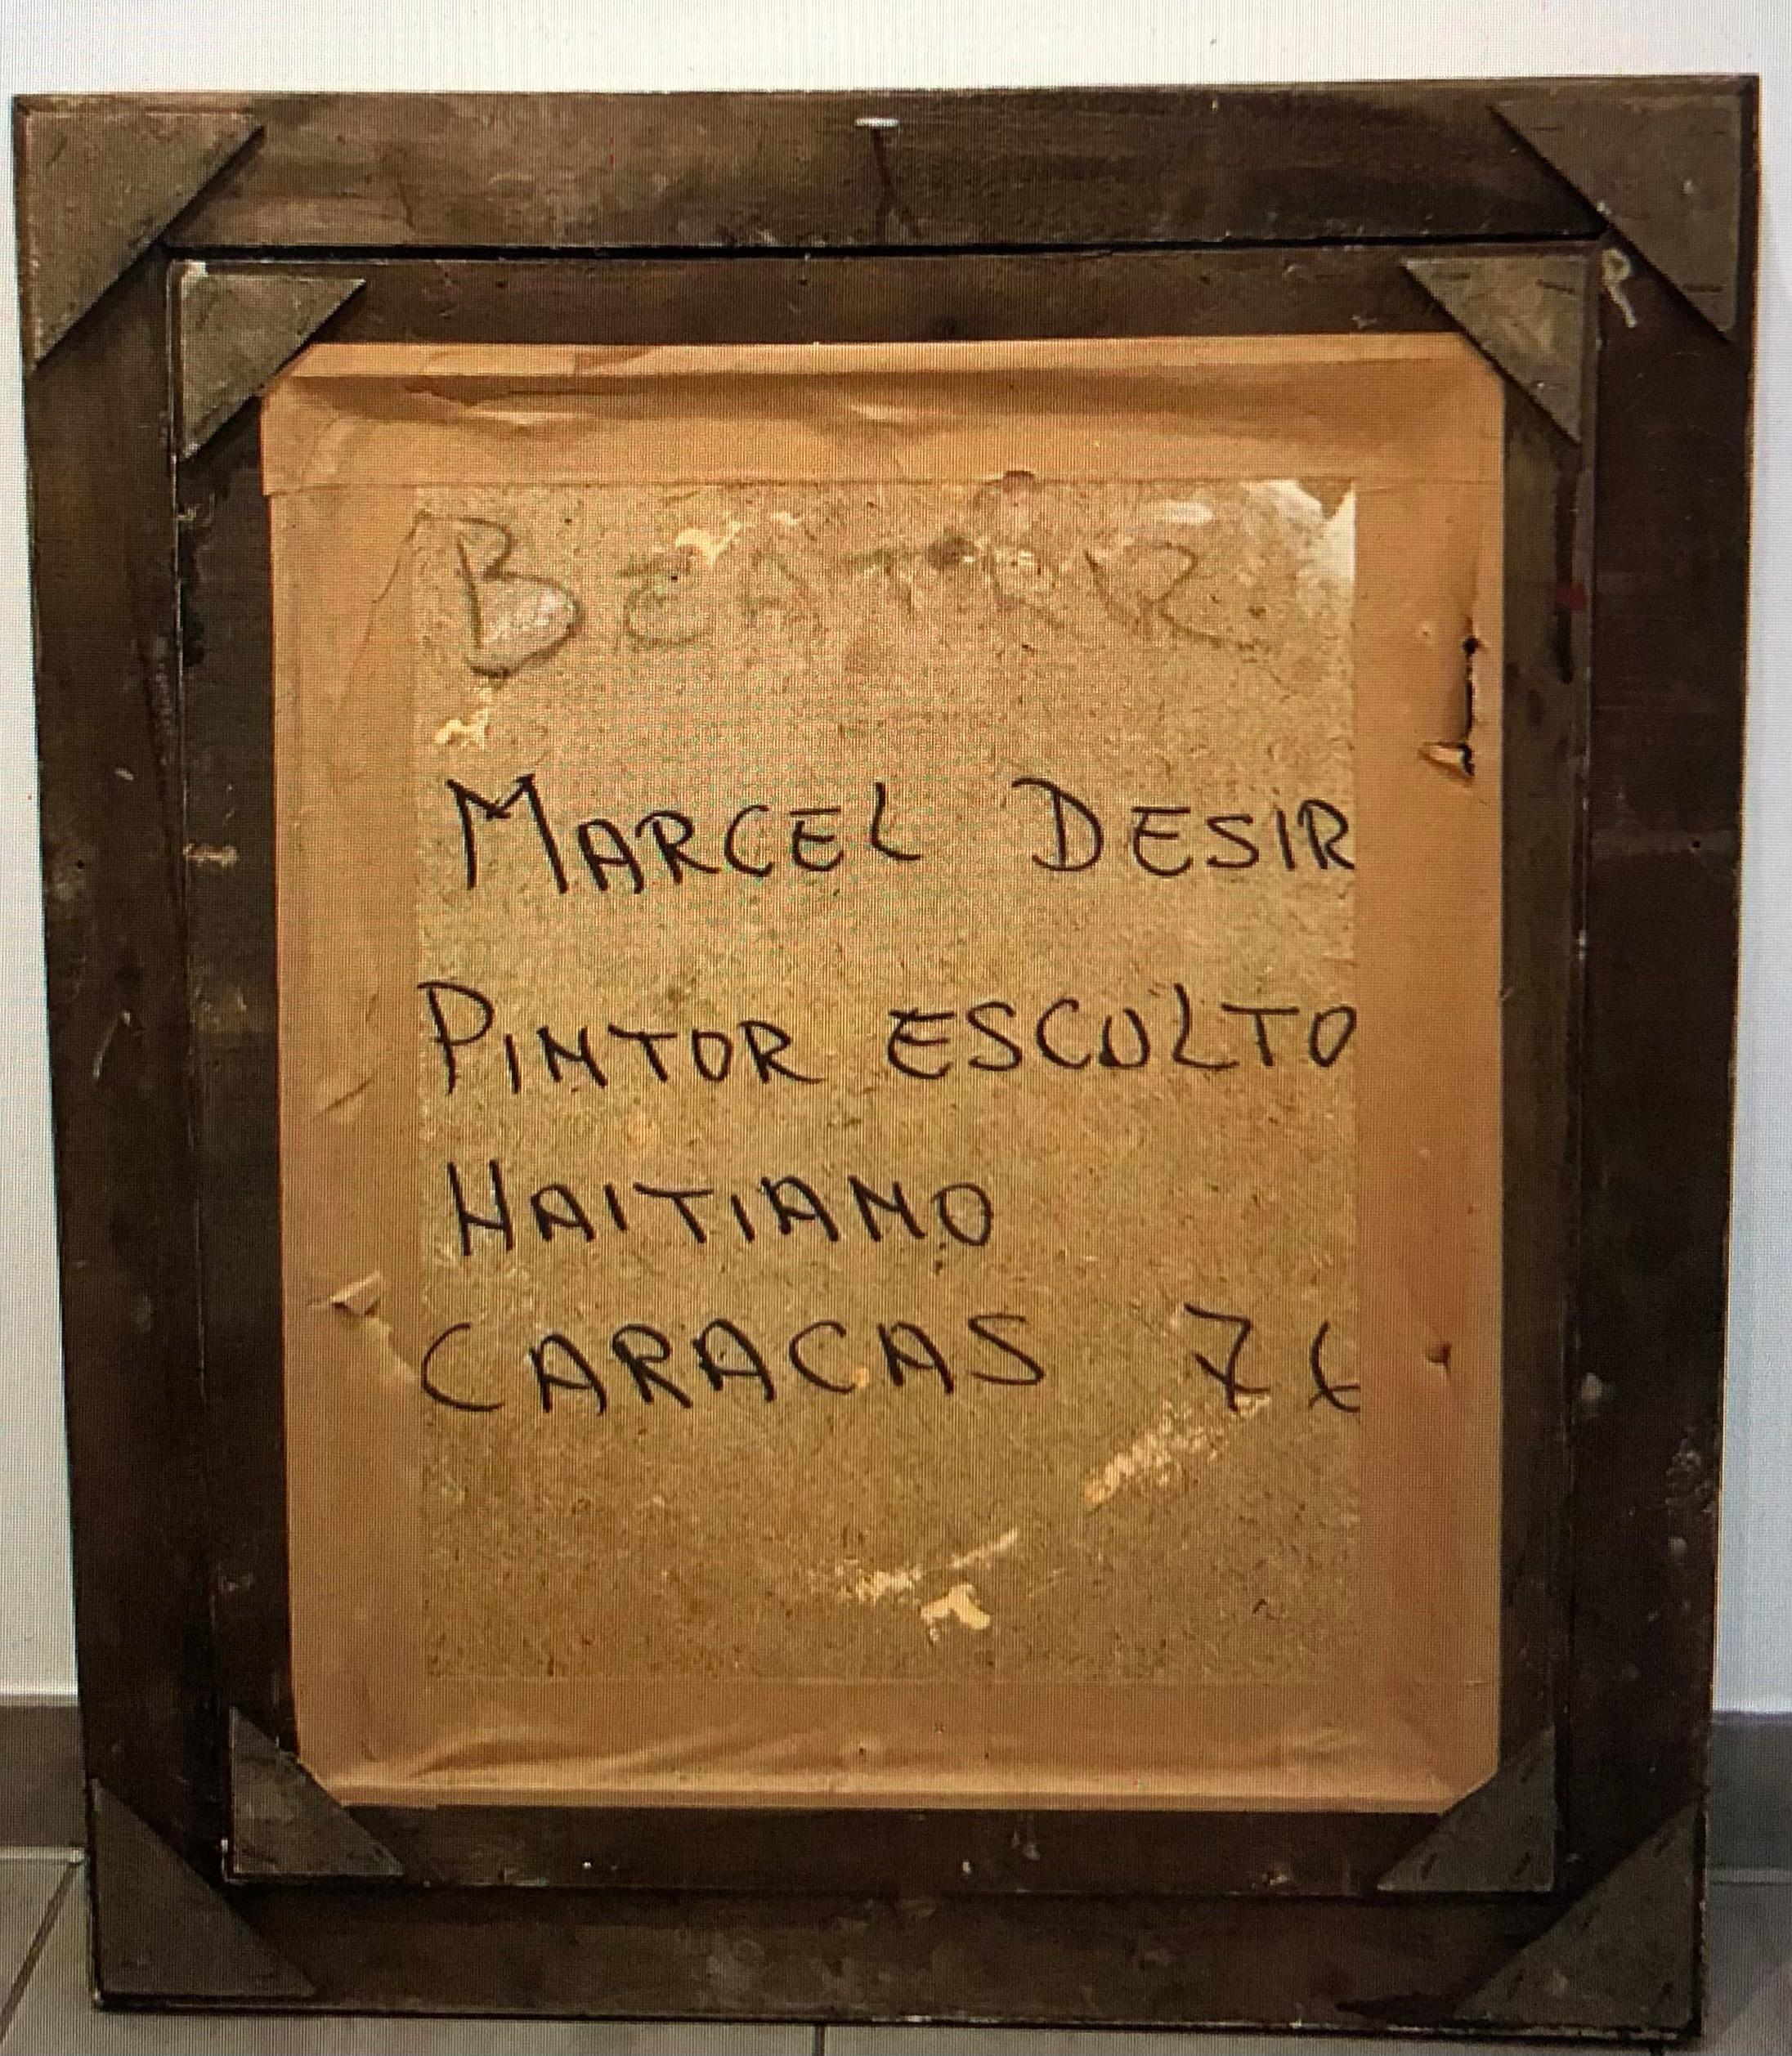 MARCEL DESIR
PINTOR ESCULTO
HAITIANO
CARACAS 76